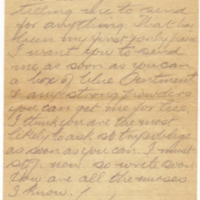 telling me to send
for anything. That has
been my first only
I want you to send
me as soon as you can
a box of blue Ointment
& any strong powders
you can get me for lice
I think you are the most
likely to ask so
as soon as you can. I must
stop now so write soon
how are all the nurses
I know.